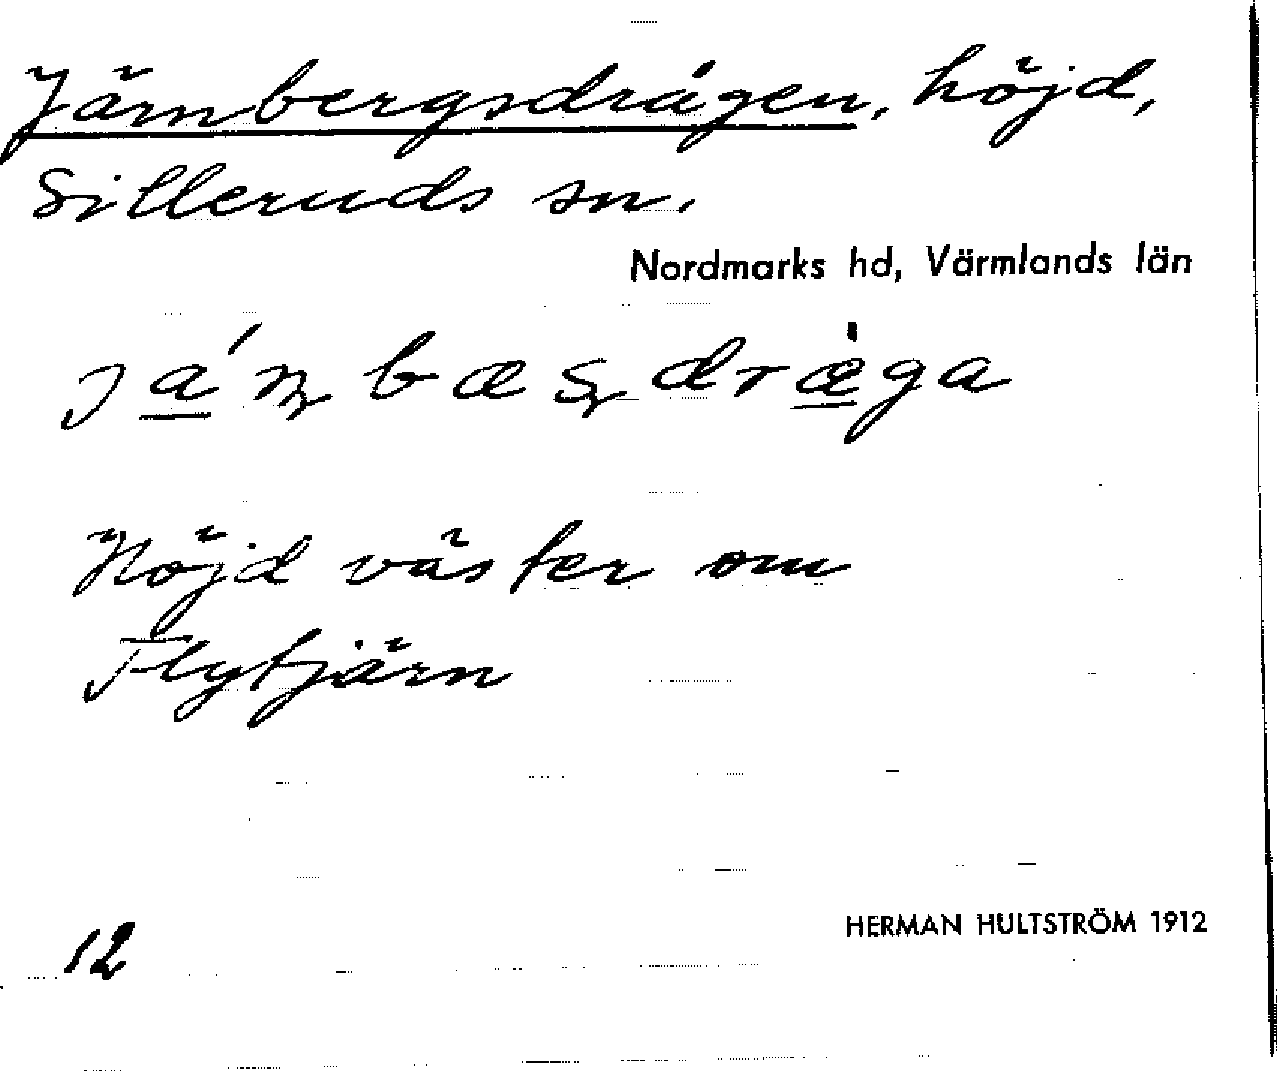 Järnbergsdrågen, höjd,
Silleruds sn.
Nordmarks hd, Värmlands län
Höjd väster om
Flytjärn
12
HERMAN HULTSTRÖM 1912